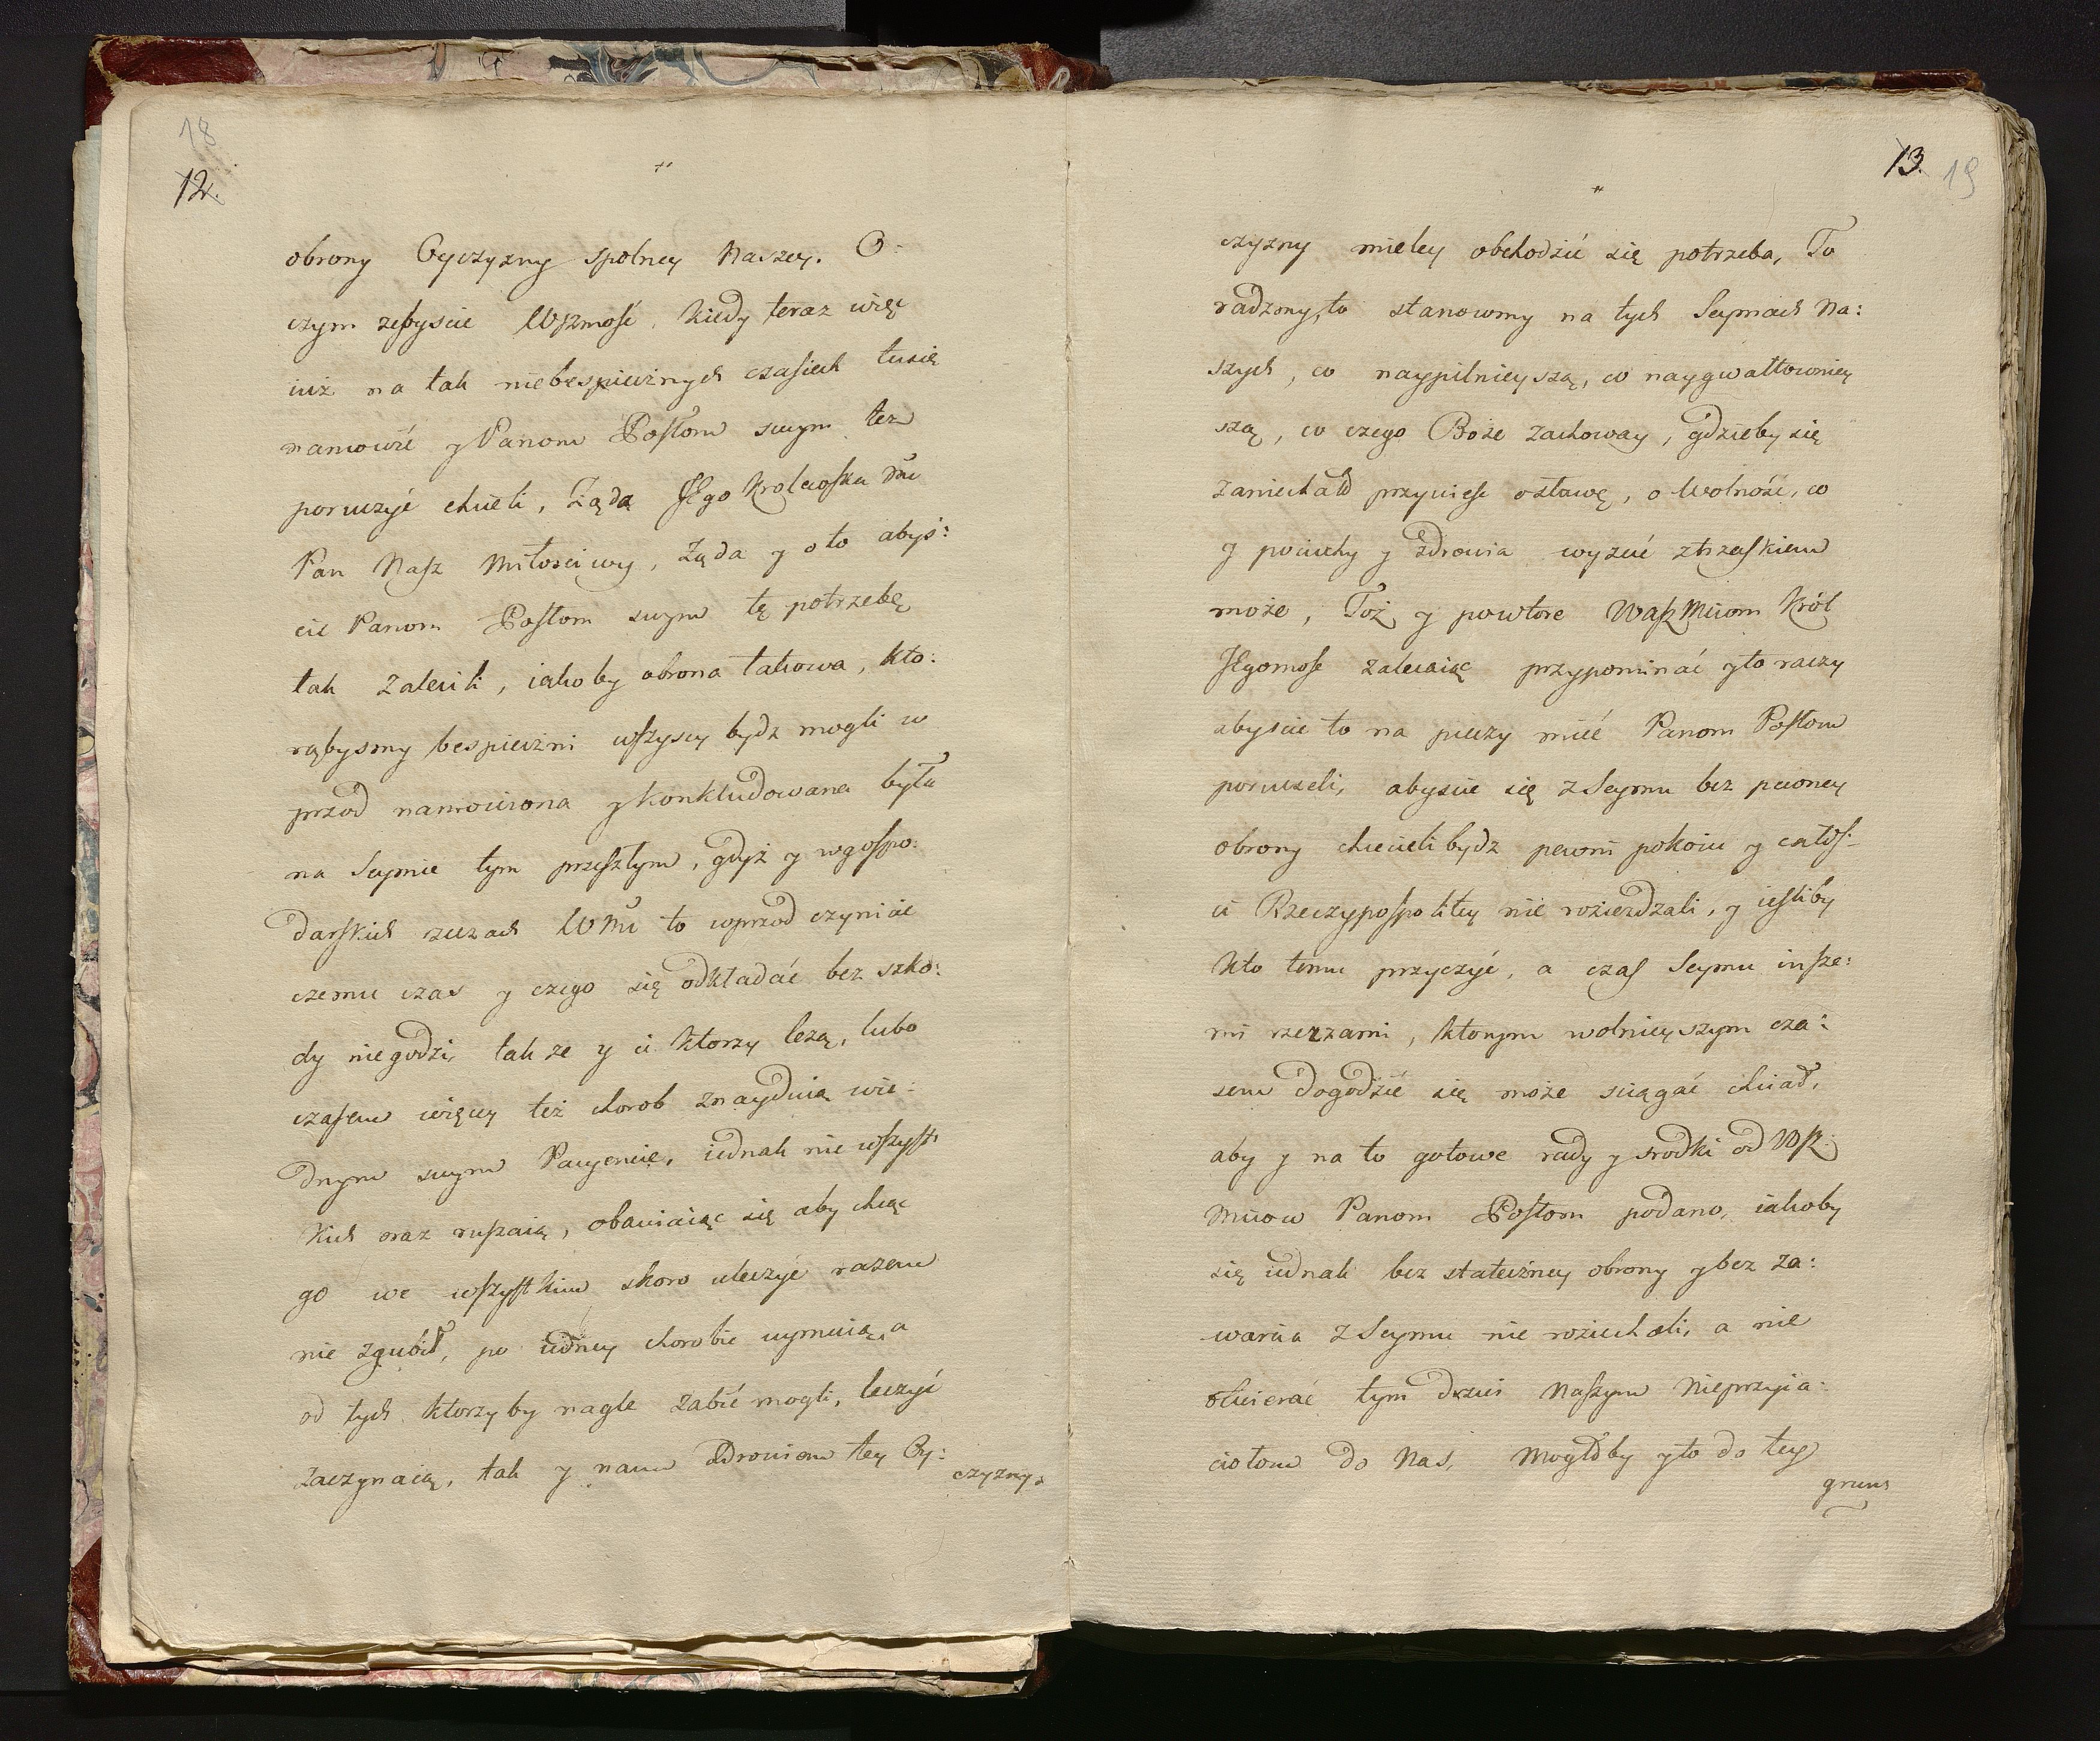 18
12.
obrony Oyczyzny spolney Naszey. O:
czym zebyscie WPzmość, kiedy teraz więc
iuż na tak niebespiecznych czasiech tusię
namowić y Panom Posłom swym też
poruczyć chcieli, Ząda JEgo Krolewska Mć
Pan Nasz Miłosciwy, Ząda y oto abyś:
cie Panom Posłom swym tę potrzebę
tak zalecili, iakoby obrona takowa, kto:
rąbysmy bespieczni wszyscy bydz mogli w
przod namowiona y konkludowana była
na Seymie tym przeszłym, gdyż y wgospo:
darskich rzeczach WMć to wprzod czynicie
czemu czas y czego się odkładać bez szko:
dy niegodzi, tak ze y ci ktorzy leżą, lubo
czasem więcey też chorob znayduią wie:
dnym swym Pacyencie, iednak nie wszyst
kich oraz ruszaią, obawiaiąc się aby chcąc
go we wszystkim skoro uleczyć razem
nie zgubił, po iedney chorobie uymuią, a
od tych ktorzyby nagle zabić mogli, leczyć
zaczynaią, tak y nam Zdrowiem tey Oy:
czyzny.
13. 19
czyzny mieley obchodzić się potrzeba, To
radzmy, to stanowmy na tych Seymach Na:
szych, co naypilnieyszą, co naygwałtowniey
szą, co czego Boże zachoway, gdzieby się
zaniechało przyciese osławę, o Wolność, co
y pociechy y zdrowia wyzuć ztrzaskiem
może, Toż y powtore WaszMciom Król
JEgomość zalecaiąc przypominać yto raczy
abyscie to na pieczy mieć Panom Posłom
poruczeli, abyscie się z Seymu bez pewney
obrony chcieli bydz pewni pokoiu y całoś:
ci Rzeczypospolitey nie roziezdzali, y iesliby
kto temu przyczyć, a czas Seymu insze:
mi rzeczami, ktorym wolnieyszym cza:
sem dogodzić się może sciągać chciał,
aby y na to gotowe rady y srodki od WP.
Mciow Panom Posłom podano, iakoby
się iednak bez stateczney obrony y bez za:
warcia z Seymu nie roziechali, a nie
otwierać tym drzwi Naszym Nieprzyia:
ciołom do Nas, Mogłoby yto do tego
grun: